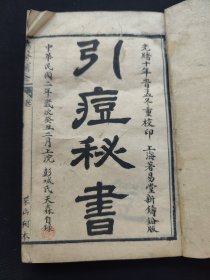 光緒十年晋孟冬重校印 上海著易堂新鑄鉛版
引痘秘書
中華民國二年歲次癸丑二月上浣 彭城氏天森自球